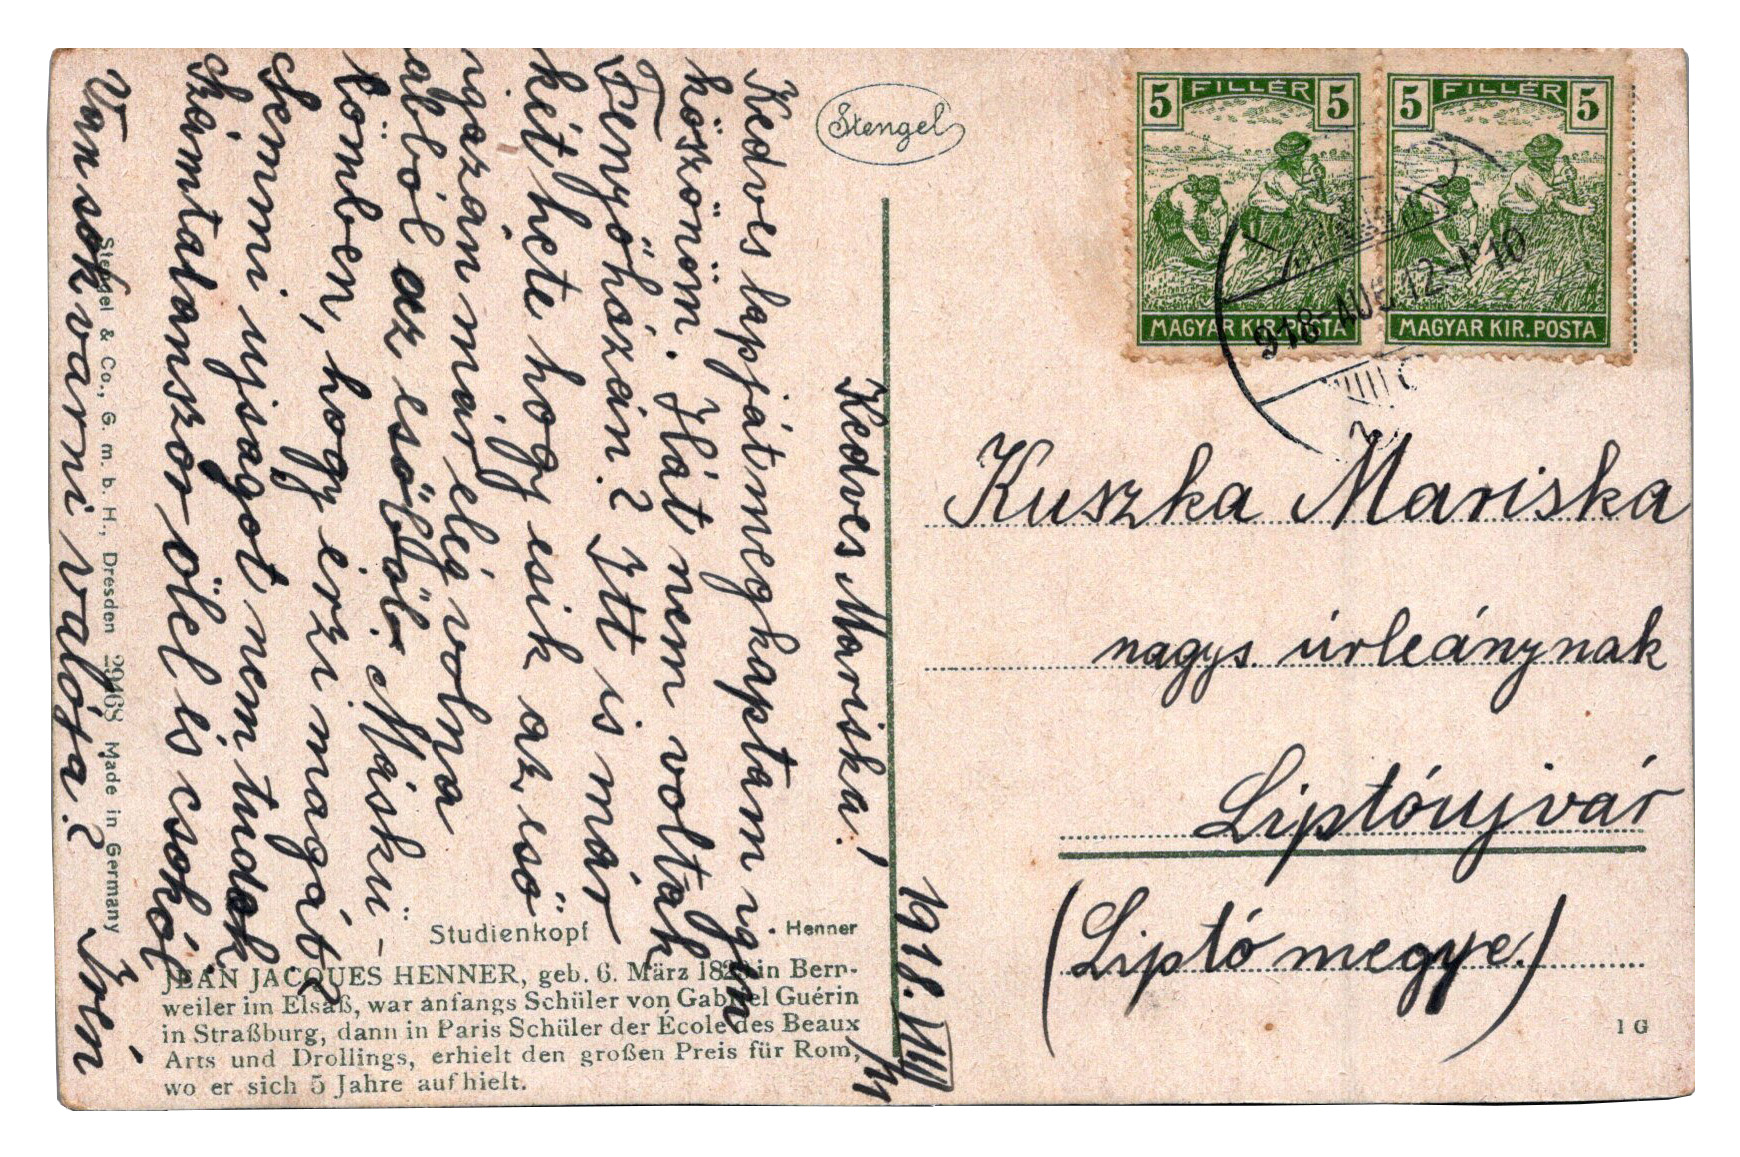 Stengel
5 FILLÉR 5
MAGYAR KIR. POSTA
5 FILLÉR 5
MAGYAR KIR. POSTA
918-AUG 12
1918. VIII/11
Kedves Mariska!
Kedves lapját megkaptam igen
köszönöm. Hát nem voltak
Fenyőházán? Itt is már
két hete hogy esik az eső
igazán már elég volna
abból az esőből. Máskü-
lömben, hogy érzi magát?
Semmi ujságot nem tudok
Számtalanszor ölel és csókol
Irén
Vansokvarni valója?
Kuszka Mariska
nagys. úrleánynak
Liptóujvár
(Liptó megye.)
Studienkopf
Henner
JEAN JACQUES HENNER, geb. 6. März 1829 in Bern-
weiler im Elsaß, war anfangs Schüler von Gabriel Guérin
in Straßburg, dann in Paris Schüler der École des Beaux
Arts und Drollings, erhielt den großen Preis für Rom,
wo er sich 5 Jahre aufhielt.
Stengel & Co., G. m. b. H., Dresden 29468 Made in Germany
1 G